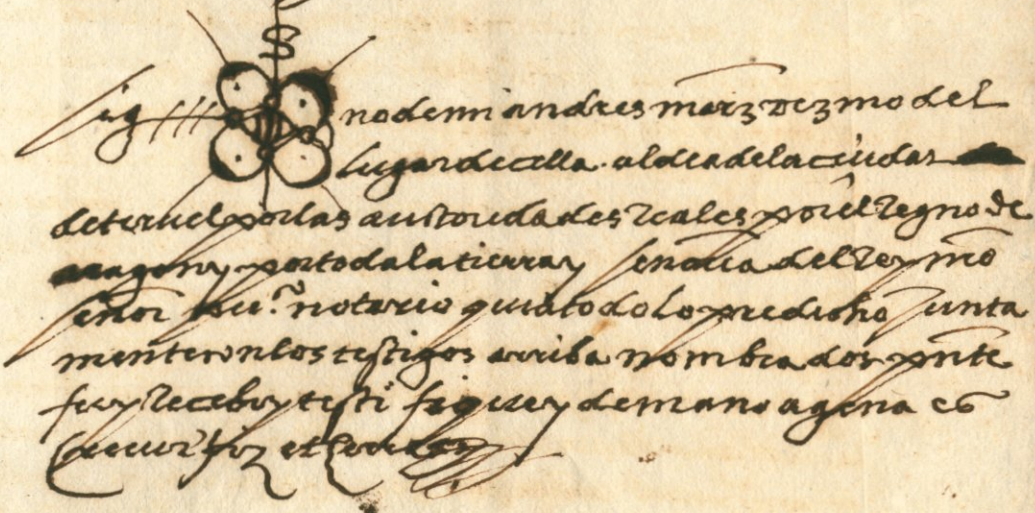 Sig no de mi andres marz vezino del
lugar de cella aldea de la ciudat
de teruel por las auctoridades reales por el regno de
aragon y por toda la tierra y senoria del rey nro
señor pu.co notario qui a todo lo predicho junta
mente con los testigos arriba nombrados pnte
fuy recebi y testi fique y de mano agena
et